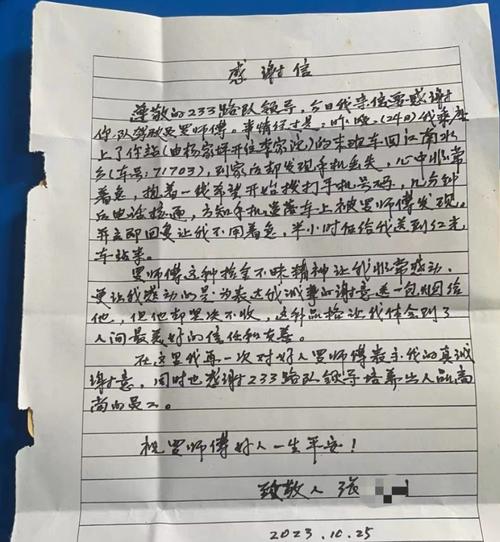 感谢信
尊敬的233路队领导，今日我来信要感谢
你队驾驶员罗师傅。事情经过是：昨晚（24日）我乘座
上了你站（由杨家坪开往李家沱）的末班车回江南水
乡（车号：71703），到家后却发现手机丢失，心中非常
着急，抱着一线希望开始拨打手机号码，几分钟
后电话接通，方知手机遗落车上被罗师傅发现，
并立即回复让我不用着急，半小时后给我送到红光
车站来。
罗师傅这种拾金不昧精神让我非常感动，
更让我感动的是，为表达我诚挚的谢意送一包烟给
他，但他却坚决不收，这种品格让我体会到了
人间最美好的信任和友善。
在这里我再一次对好人罗师傅表示我的真诚
谢意，同时也感谢233路队领导培养出人品高
尚的员工。
祝罗师傅好人一生平安！
致敬人 张
2023.10.25